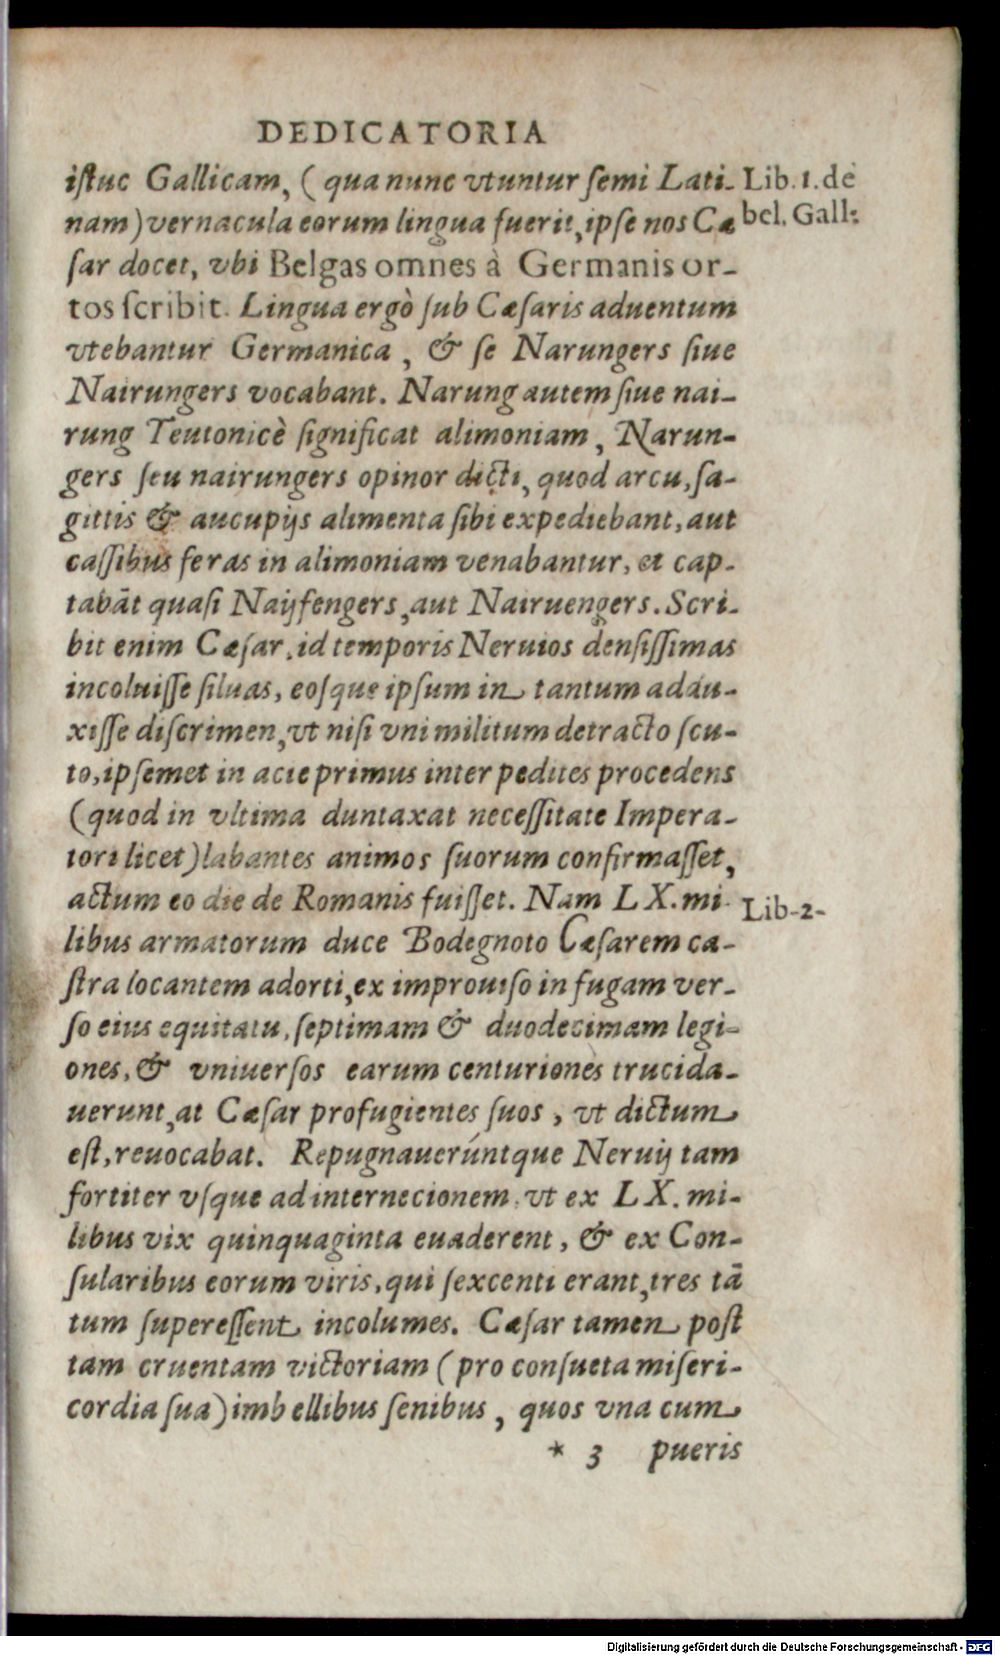 DEDICATORIA
iſtuc Gallicam, ( qua nunc vtuntur ſemi Lati-
Lib. 1. de
nam) vernacula eorum lingua fuerit, ipſe nos Cæ
bel. Gall:
ſar docet, vbi Belgas omnes à Germanis or-
tos ſcribit. Lingua ergò ſub Cæſaris aduentum
vtebantur Germanica , & ſe Narungers ſiue
Nairungers vocabant. Narung autem ſiue nai-
rung Teutonicè ſignificat alimoniam , Narun-
gers ſeu nairungers opinor dicti, quod arcu, ſa-
gittis & aucupijs alimenta ſibi expediebant, aut
caſſibus feras in alimoniam venabantur, et cap-
tabāt quaſi Naijfengers, aut Nairuengers. Scri-
bit enim Cæſar, id temporis Neruios denſiſſimas
incoluiſſe ſiluas, eoſque ipſum in tantum addu-
xiſſe diſcrimen, vt niſi vni militum detracto ſcu-
to, ipſemet in acie primus inter pedites procedens
(quod in vltima duntaxat neceſſitate Impera-
tori licet) labantes animos ſuorum confirmaſſet,
actum eo die de Romanis fuiſſet. Nam LX. mi-
Lib-2-
libus armatorum duce Bodegnoto Cæſarem ca-
ſtra locantem adorti, ex improuiſo in fugam ver-
ſo eius equitatu, ſeptimam & duodecimam legi-
ones, & vniuerſos earum centuriones trucida-
uerunt, at Cæſar profugientes ſuos , vt dictum
eſt, reuocabat. Repugnauerúntque Neruij tam
fortiter vſque ad internecionem, vt ex LX. mi-
libus vix quinquaginta euaderent, & ex Con-
ſularibus eorum viris, qui ſexcenti erant, tres tā
tum ſupereſſent incolumes. Cæſar tamen poſt
tam cruentam victoriam ( pro conſueta miſeri-
cordia ſua) imbellibus ſenibus , quos vna cum
* 3 pueris
Digitalisierung gefördert durch die Deutsche Forschungsgemeinschaft - DFG